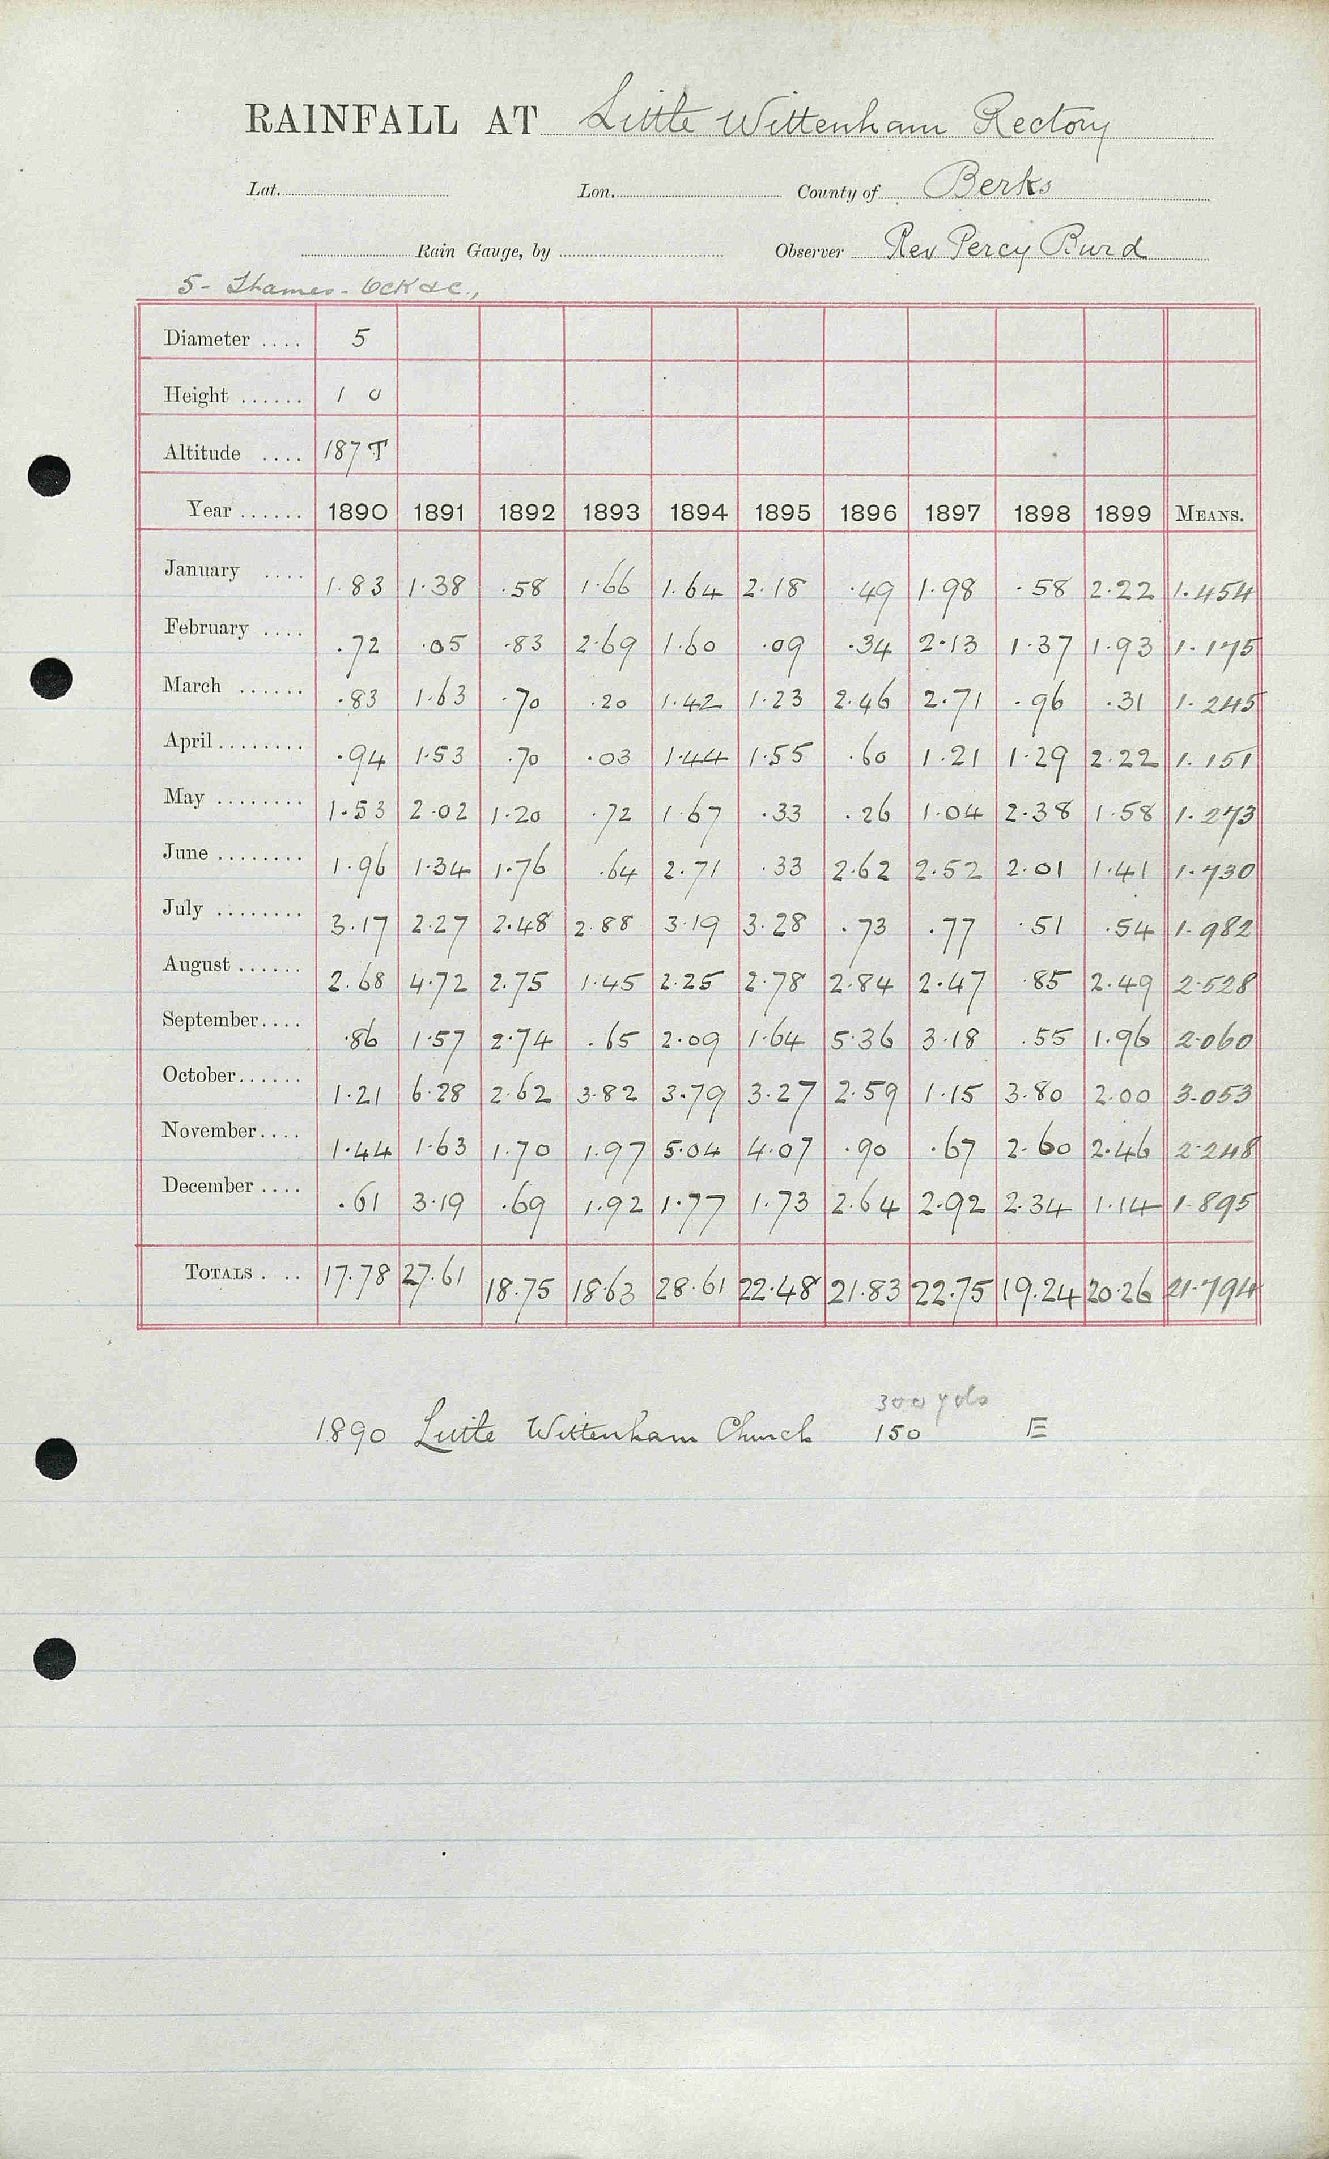 RAINFALL AT Little Wittenham Rectory
Lat. Lon. County of Berks
Rain Gauge, by Observer Rev Percy Burd
5- Thames - Ock &c.,
Diameter .... 5
Height ...... 1 0
Altitude .... 187 T
Year ...... 1890 1891 1892 1893 1894 1895 1896 1897 1898 1899 MEANS.
January .... 1.83 1.38 .58 1.66 1.64 2.18 .49 1.98 .58 2.22 1.454
February .... .72 .05 .83 2.69 1.60 .09 .34 2.13 1.37 1.93 1.175
March ...... .83 1.63 .70 .20 1.42 1.23 2.46 2.71 .96 .31 1.245
April ........ .94 1.53 .70 .03 1.44 1.55 .60 1.21 1.29 2.22 1.151
May ........ 1.53 2.02 1.20 .72 1.67 .33 .26 1.04 2.38 1.58 1.273
June ........ 1.96 1.34 1.76 .64 2.71 .33 2.62 2.52 2.01 1.41 1.730
July ........ 3.17 2.27 2.48 2.88 3.19 3.28 .73 .77 .51 .54 1.982
August ...... 2.68 4.72 2.75 1.45 2.25 2.78 2.84 2.47 .85 2.49 2.528
September .... .86 1.57 2.74 .65 2.09 1.64 5.36 3.18 .55 1.96 2.060
October ...... 1.21 6.28 2.62 3.82 3.79 3.27 2.59 1.15 3.80 2.00 3.053
November .... 1.44 1.63 1.70 1.97 5.04 4.07 .90 .67 2.60 2.46 2.248
December .... .61 3.19 .69 1.92 1.77 1.73 2.64 2.92 2.34 1.14 1.895
TOTALS .... 17.78 27.61 18.75 18.63 28.61 22.48 21.83 22.75 19.24 20.26 21.794
300 yds
1890 Little Wittenham Church 150 E